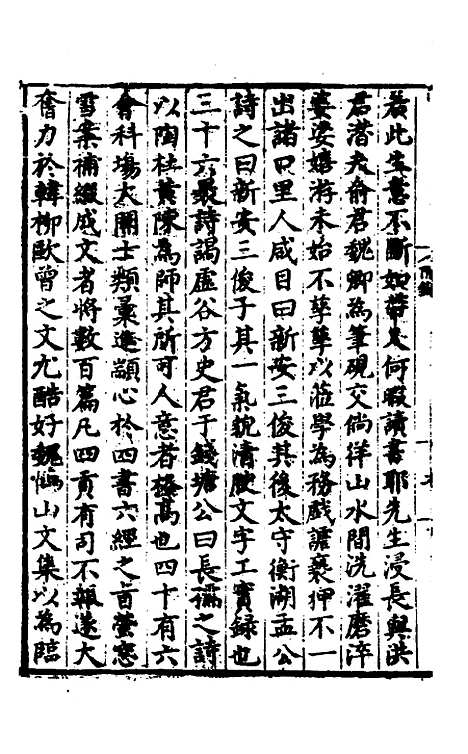 若此生意不斷如帶又何暇讀書耶先生浸長與洪
君潛夫俞君魏卿為筆硯交倘徉山水間洗濯磨淬
婆娑嬉游未始不孳孳以蒞學為務戲謔䙝狎不一
出諸口里人咸目曰新安三俊其後太守衡湖孟公
詩之曰新安三俊子其一氣貌清腴文字工實錄也
三十六裒詩謁虛谷方史君于錢塘公曰長孺之詩
以陶杜黃陳為師其所可人意者極高也四十有六
會科場大開士類彙進顓心於四書六經之旨螢窓
雪案補綴成文者將數百篇凡四貢有司不報遂大
奮力於韓柳歐曾之文尤酷好魏鶴山文集以為臨
附錄